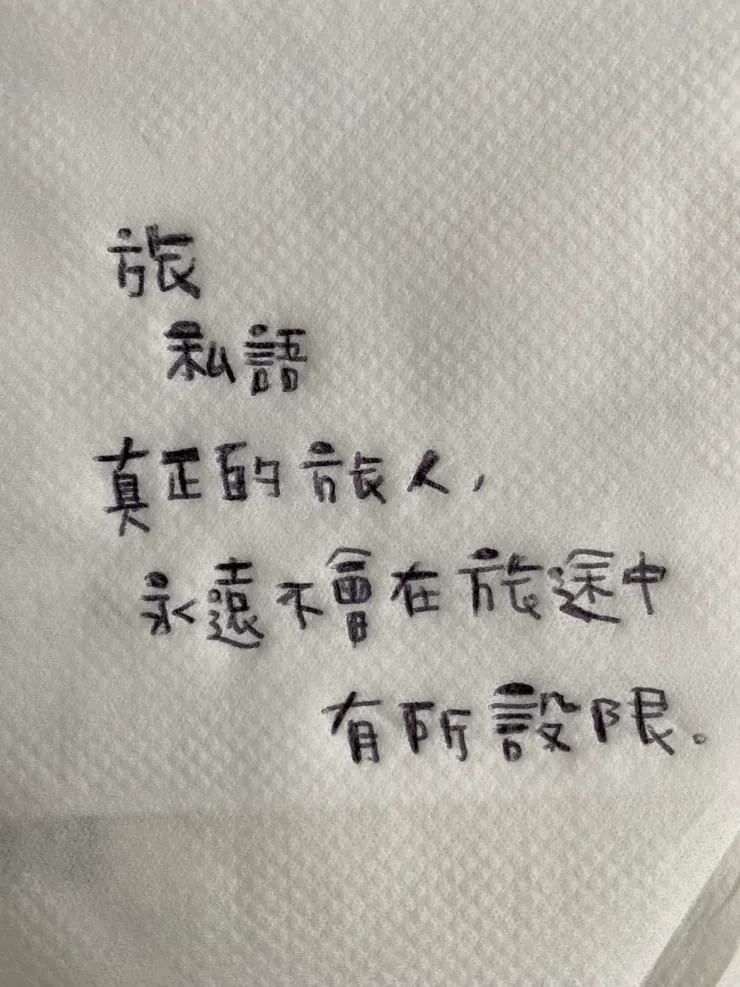 旅
私語
真正的旅人，
永遠不會在旅途中
有所設限。